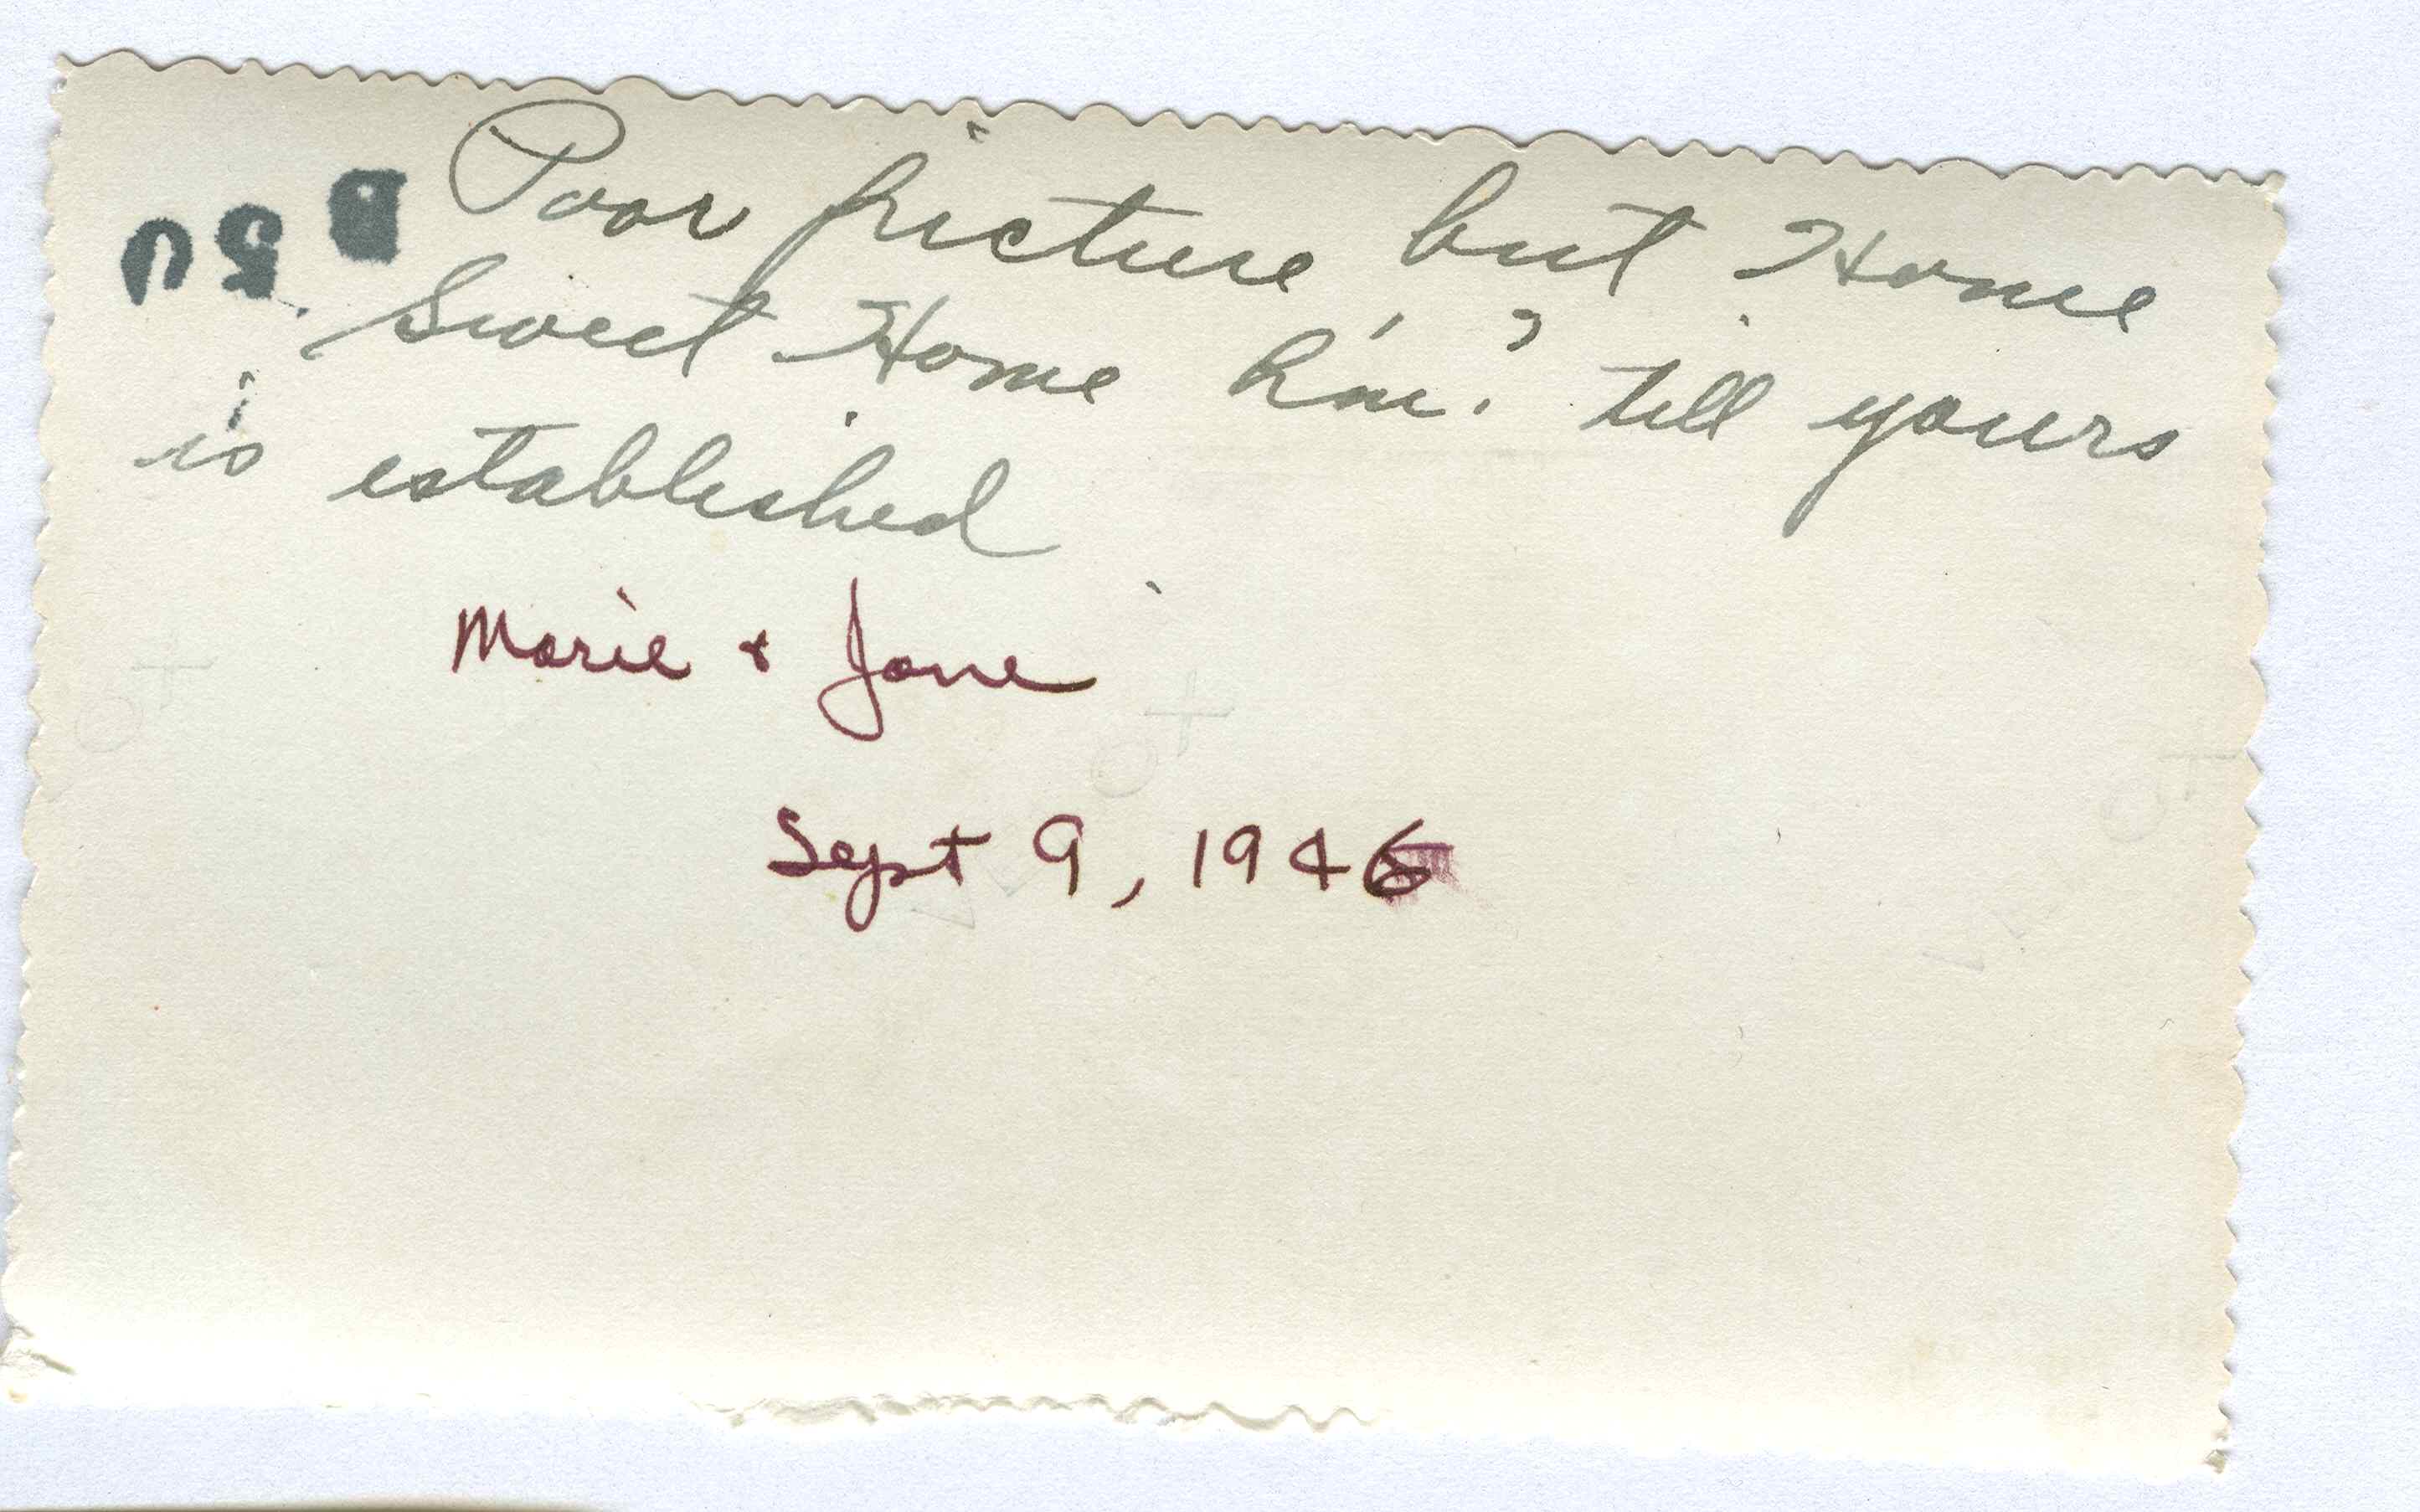 Poor picture but Home
Sweet Home hm? till yours
is established
Marie + Jane
Sept 9, 1946